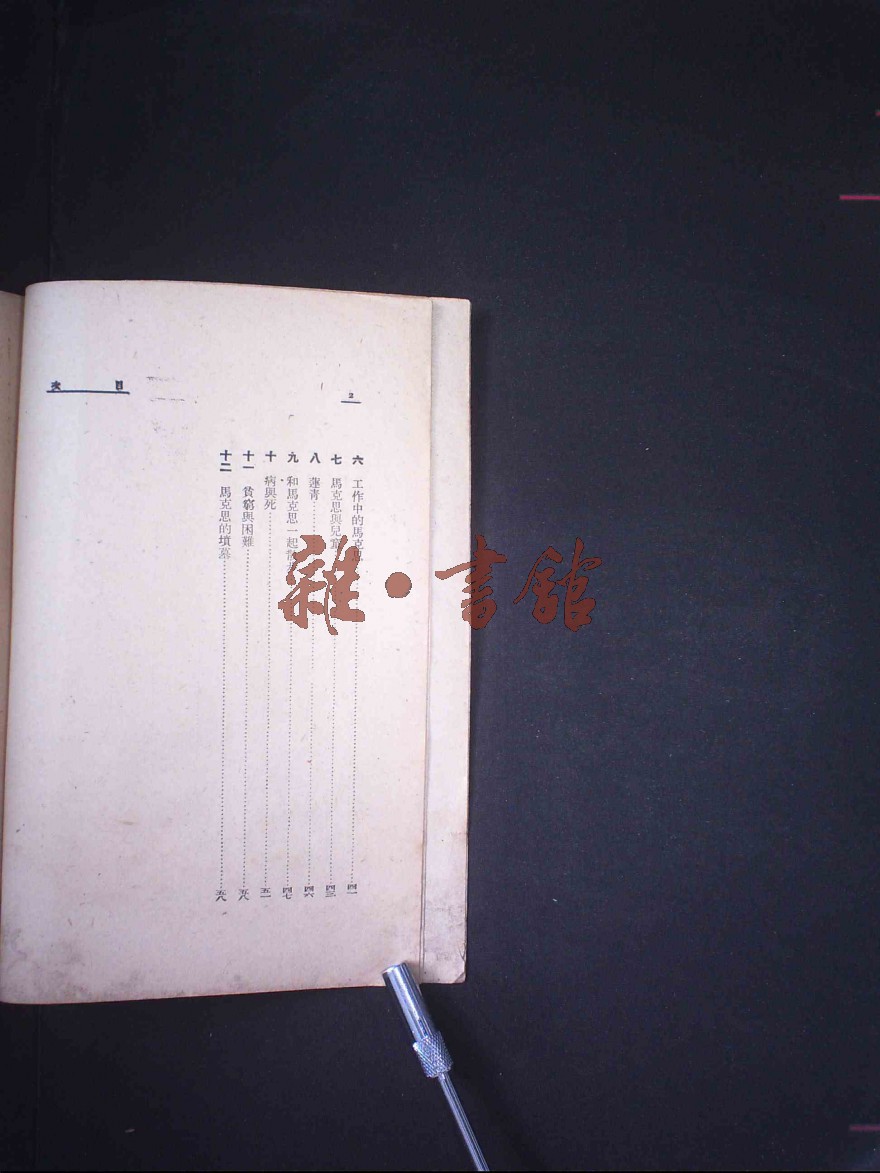 目次
2
六 工作中的馬克思 四一
七 馬克思與兒童 四三
八 蓮青 四六
九 和馬克思一起 四七
十 病與死 五一
十一 貧窮與困難 五八
十二 馬克思的墳墓 五八
雜·書館